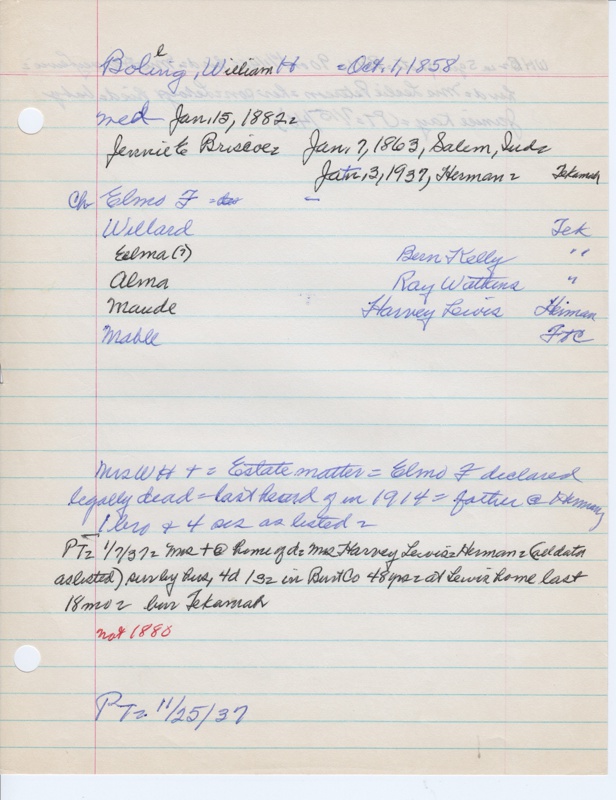 l
Boling, William H = Oct. 1, 1858
med Jan. 15, 1882 =
Jennie E Briscoe = Jan. 7, 1863, Salem, Ind =
Jan. 3, 1937, Herman = Tekamah
Ch Elmo F = –
Willard Tek
Eelma (?) Bern Kelly "
Alma Ray Watkins "
Maude Harvey Lewis Herman
Mable FtC
Mrs W H + = Estate matter = Elmo F declared
legally dead = last heard of in 1914 = father @ Herman,
1 bro + 4 sis as listed =
PT = 1/7/37 = Mrs + @ home of d = Mrs Harvey Lewis = Herman = (all data
as listed) sur by hus, 4d 1s = in Burt Co 48 yrs = at Lewis home last
18 mo = bur Tekamah
not 1880
PT = 11/25/37